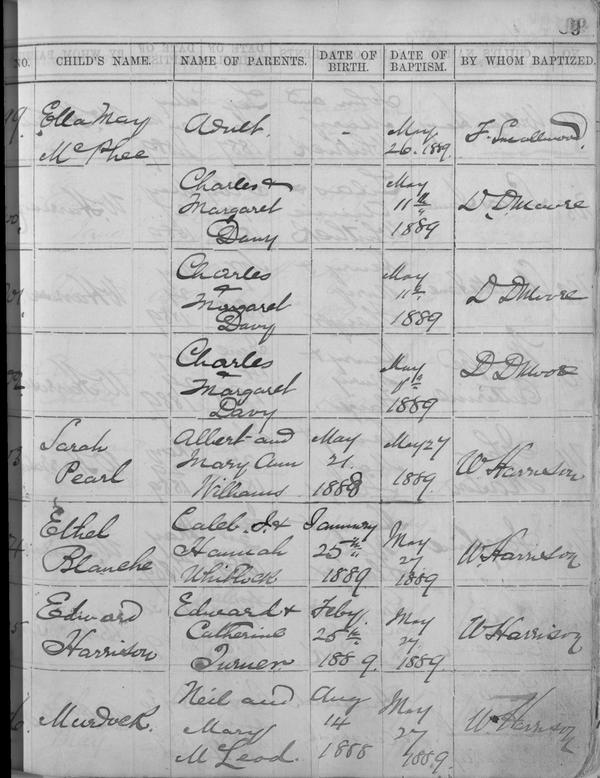 9
NO. CHILD'S NAME. NAME OF PARENTS. DATE OF BIRTH. DATE OF BAPTISM. BY WHOM BAPTIZED.
19. Ella May McPhee Adult. - May 26. 1889. F. Smallwood.
Charles & Margaret Davy May 11th 1889 D. D Moore
21. Charles & Margaret Davy May 11th 1889 D D Moore
22. Charles & Margaret Davy May 11th 1889 D D Moore
3 Sarah Pearl Albert and Mary Ann Williams May 21. 1888 May 27 1889 W Harrison
4. Ethel Blanche Caleb J. & Hannah Whitlock January 25th 1889. May 27 1889 W Harrison
5 Edward Harrison Edward & Catherine Turner Feby. 25th 1889. May 27. 1889 W Harrison
6. Murdock. Neil and Mary McLeod Aug 14 1888 May 27 1889. W Harrison